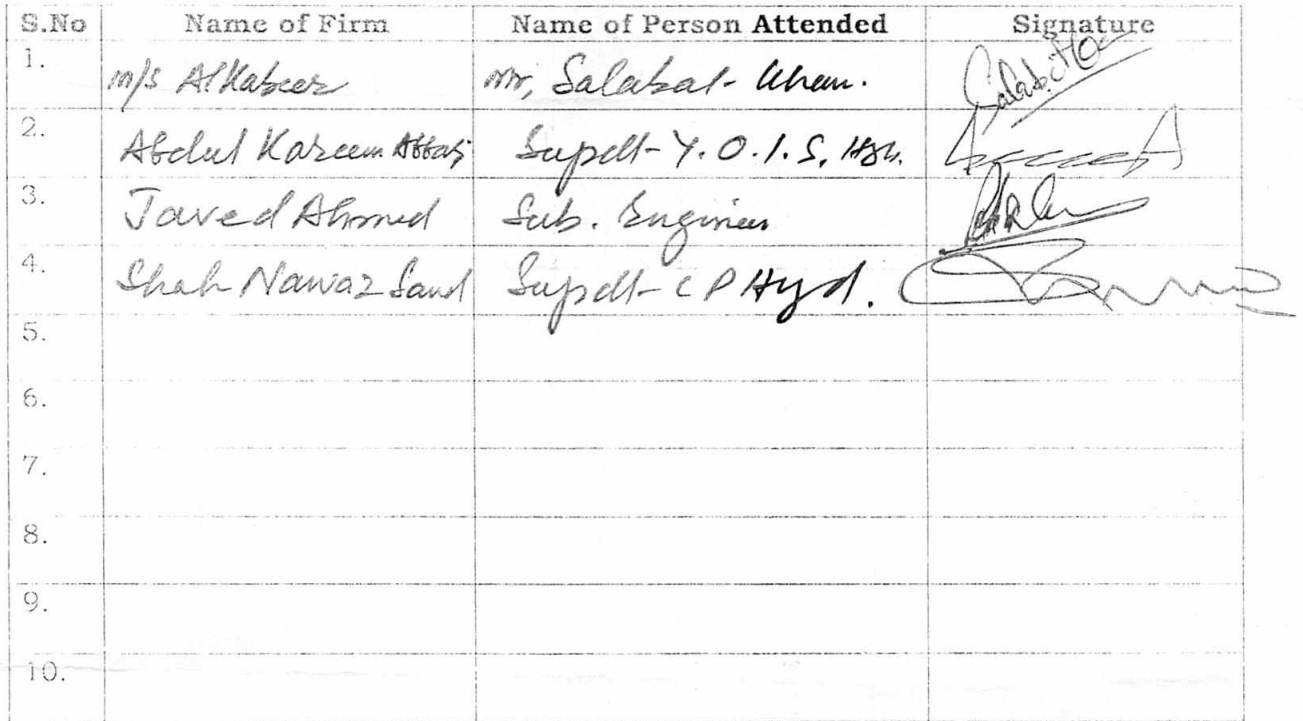 S.No Name of Firm Name of Person Attended Signature
1. M/s AlKabeer Mr, Salabat Khan.
2. Abdul Kareem Abbasi Supdt- Y.O.I.S, Hyd.
3. Javed Ahmed Sub. Engineer
4. Shah Nawaz Sand Supdt- C P Hyd.
5.
6.
7.
8.
9.
10.